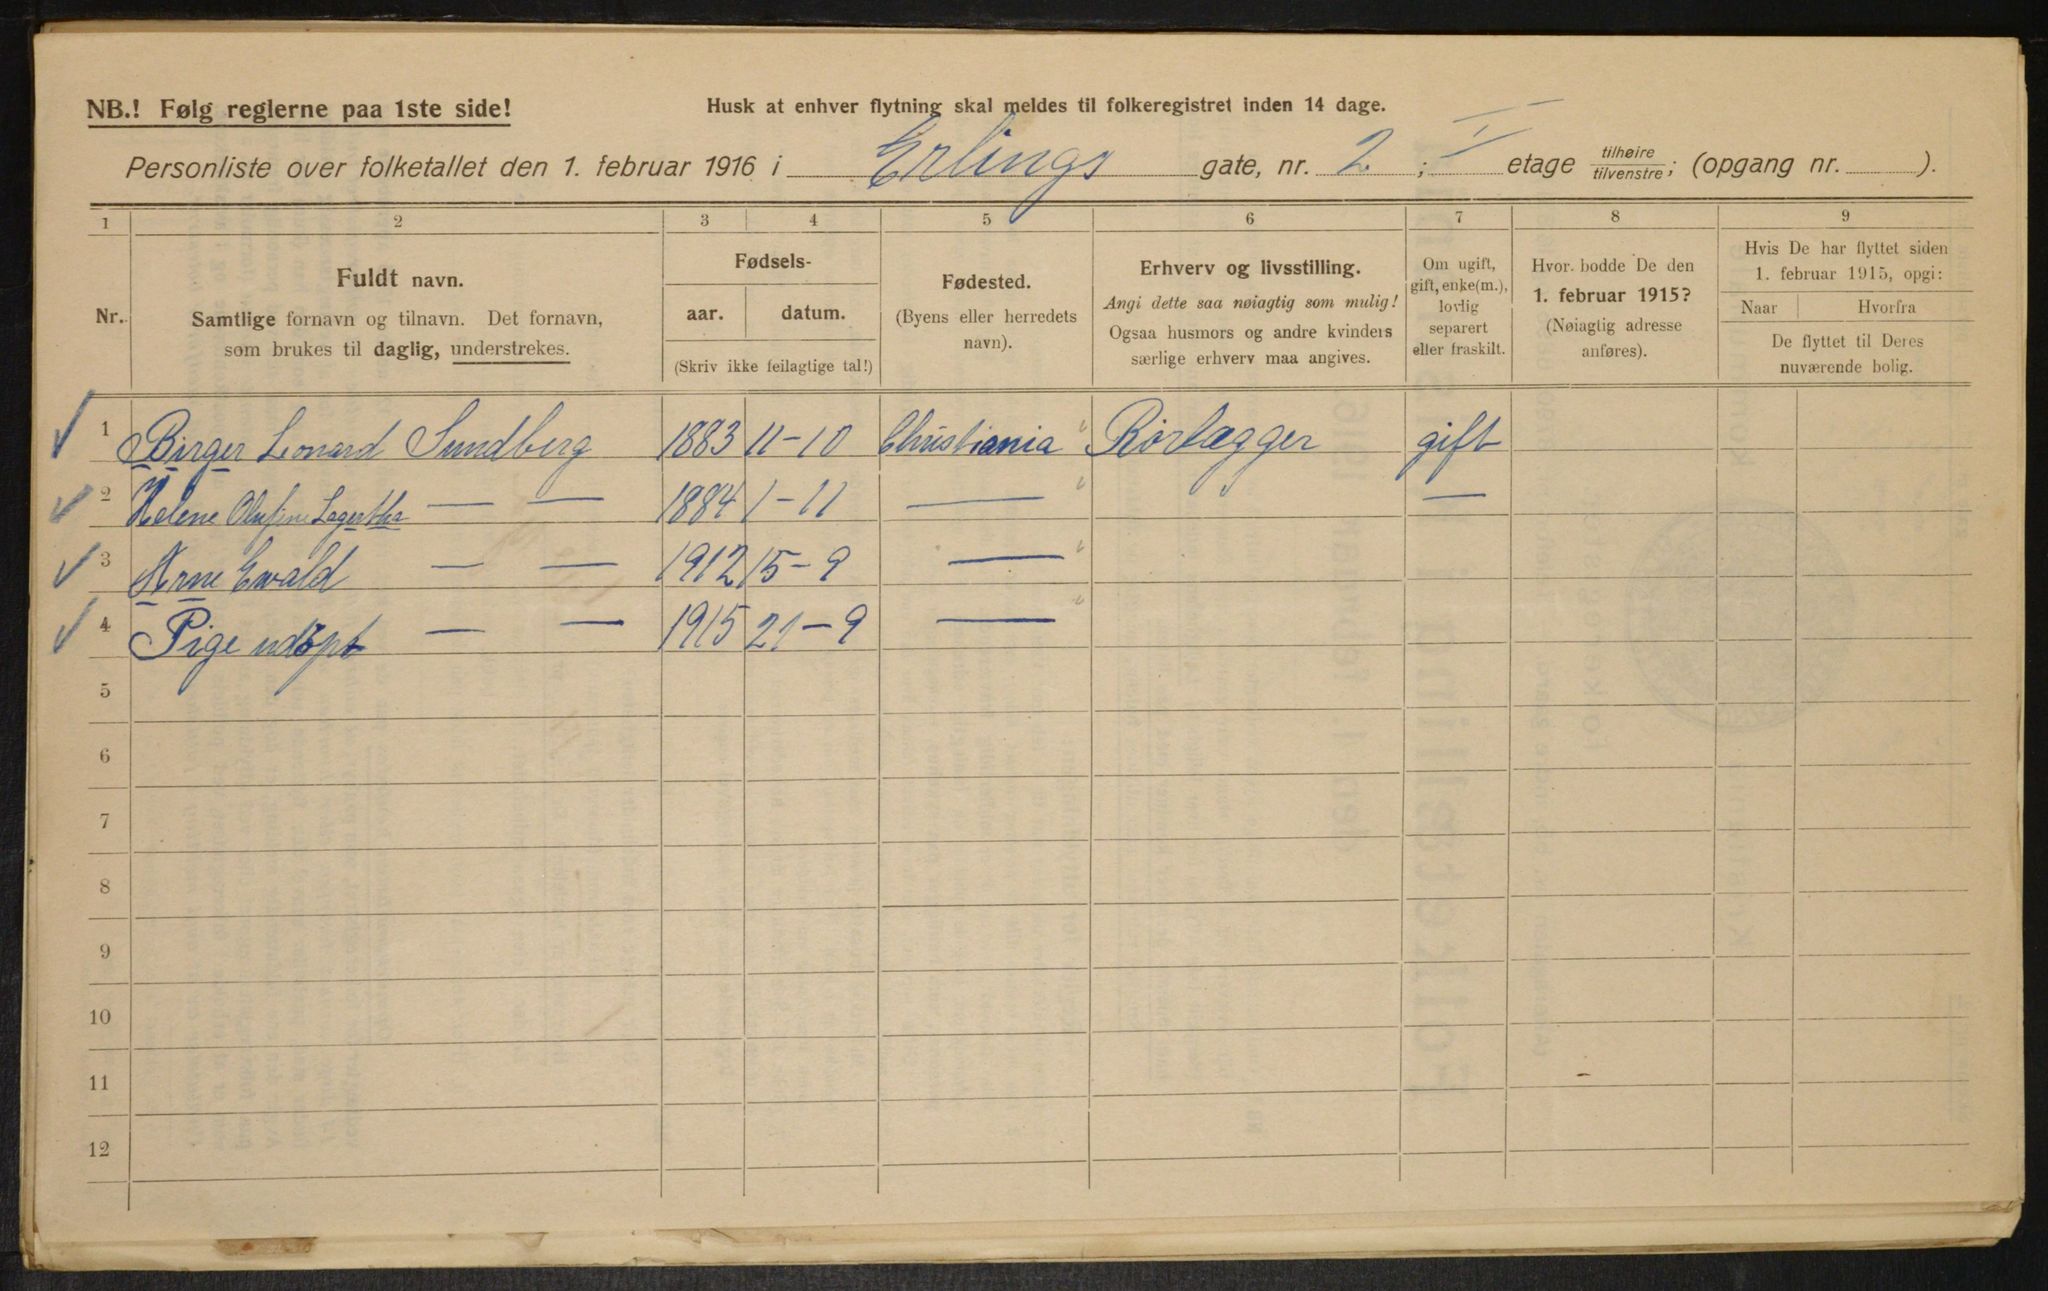 NB.! Følg reglerne paa 1ste side!
Husk at enhver flytning skal meldes til folkeregistret inden 14 dage.
Personliste over folketallet den 1. februar 1916 i Erlings gate, nr. 2 ; II etage tilhøire/tilvenstre; (opgang nr. ).
1 2 3 4 5 6 7 8 9
Nr.
Fuldt navn.
Samtlige fornavn og tilnavn. Det fornavn,
som brukes til daglig, understrekes.
Fødsels-
aar. datum.
(Skriv ikke feilagtige tal!)
Fødested.
(Byens eller herredets
navn).
Erhverv og livsstilling.
Angi dette saa nøiagtig som mulig!
Ogsaa husmors og andre kvinders
særlige erhverv maa angives.
Om ugift,
gift, enke(m.),
lovlig
separert
eller fraskilt.
Hvor bodde De den
1. februar 1915?
(Nøiagtig adresse
anføres).
Hvis De har flyttet siden
1. februar 1915, opgi:
Naar Hvorfra
De flyttet til Deres
nuværende bolig.
1 Birger Leonard Sundberg 1883 11-10 Christiania Rørlægger gift
2 Helene Olufine Lagertha — — 1884 1-11 — —
3 Arne Ewald — — 1912 15-9 —
4 Pige udøpt — — 1915 21-9 —
5
6
7
8
9
10
11
12